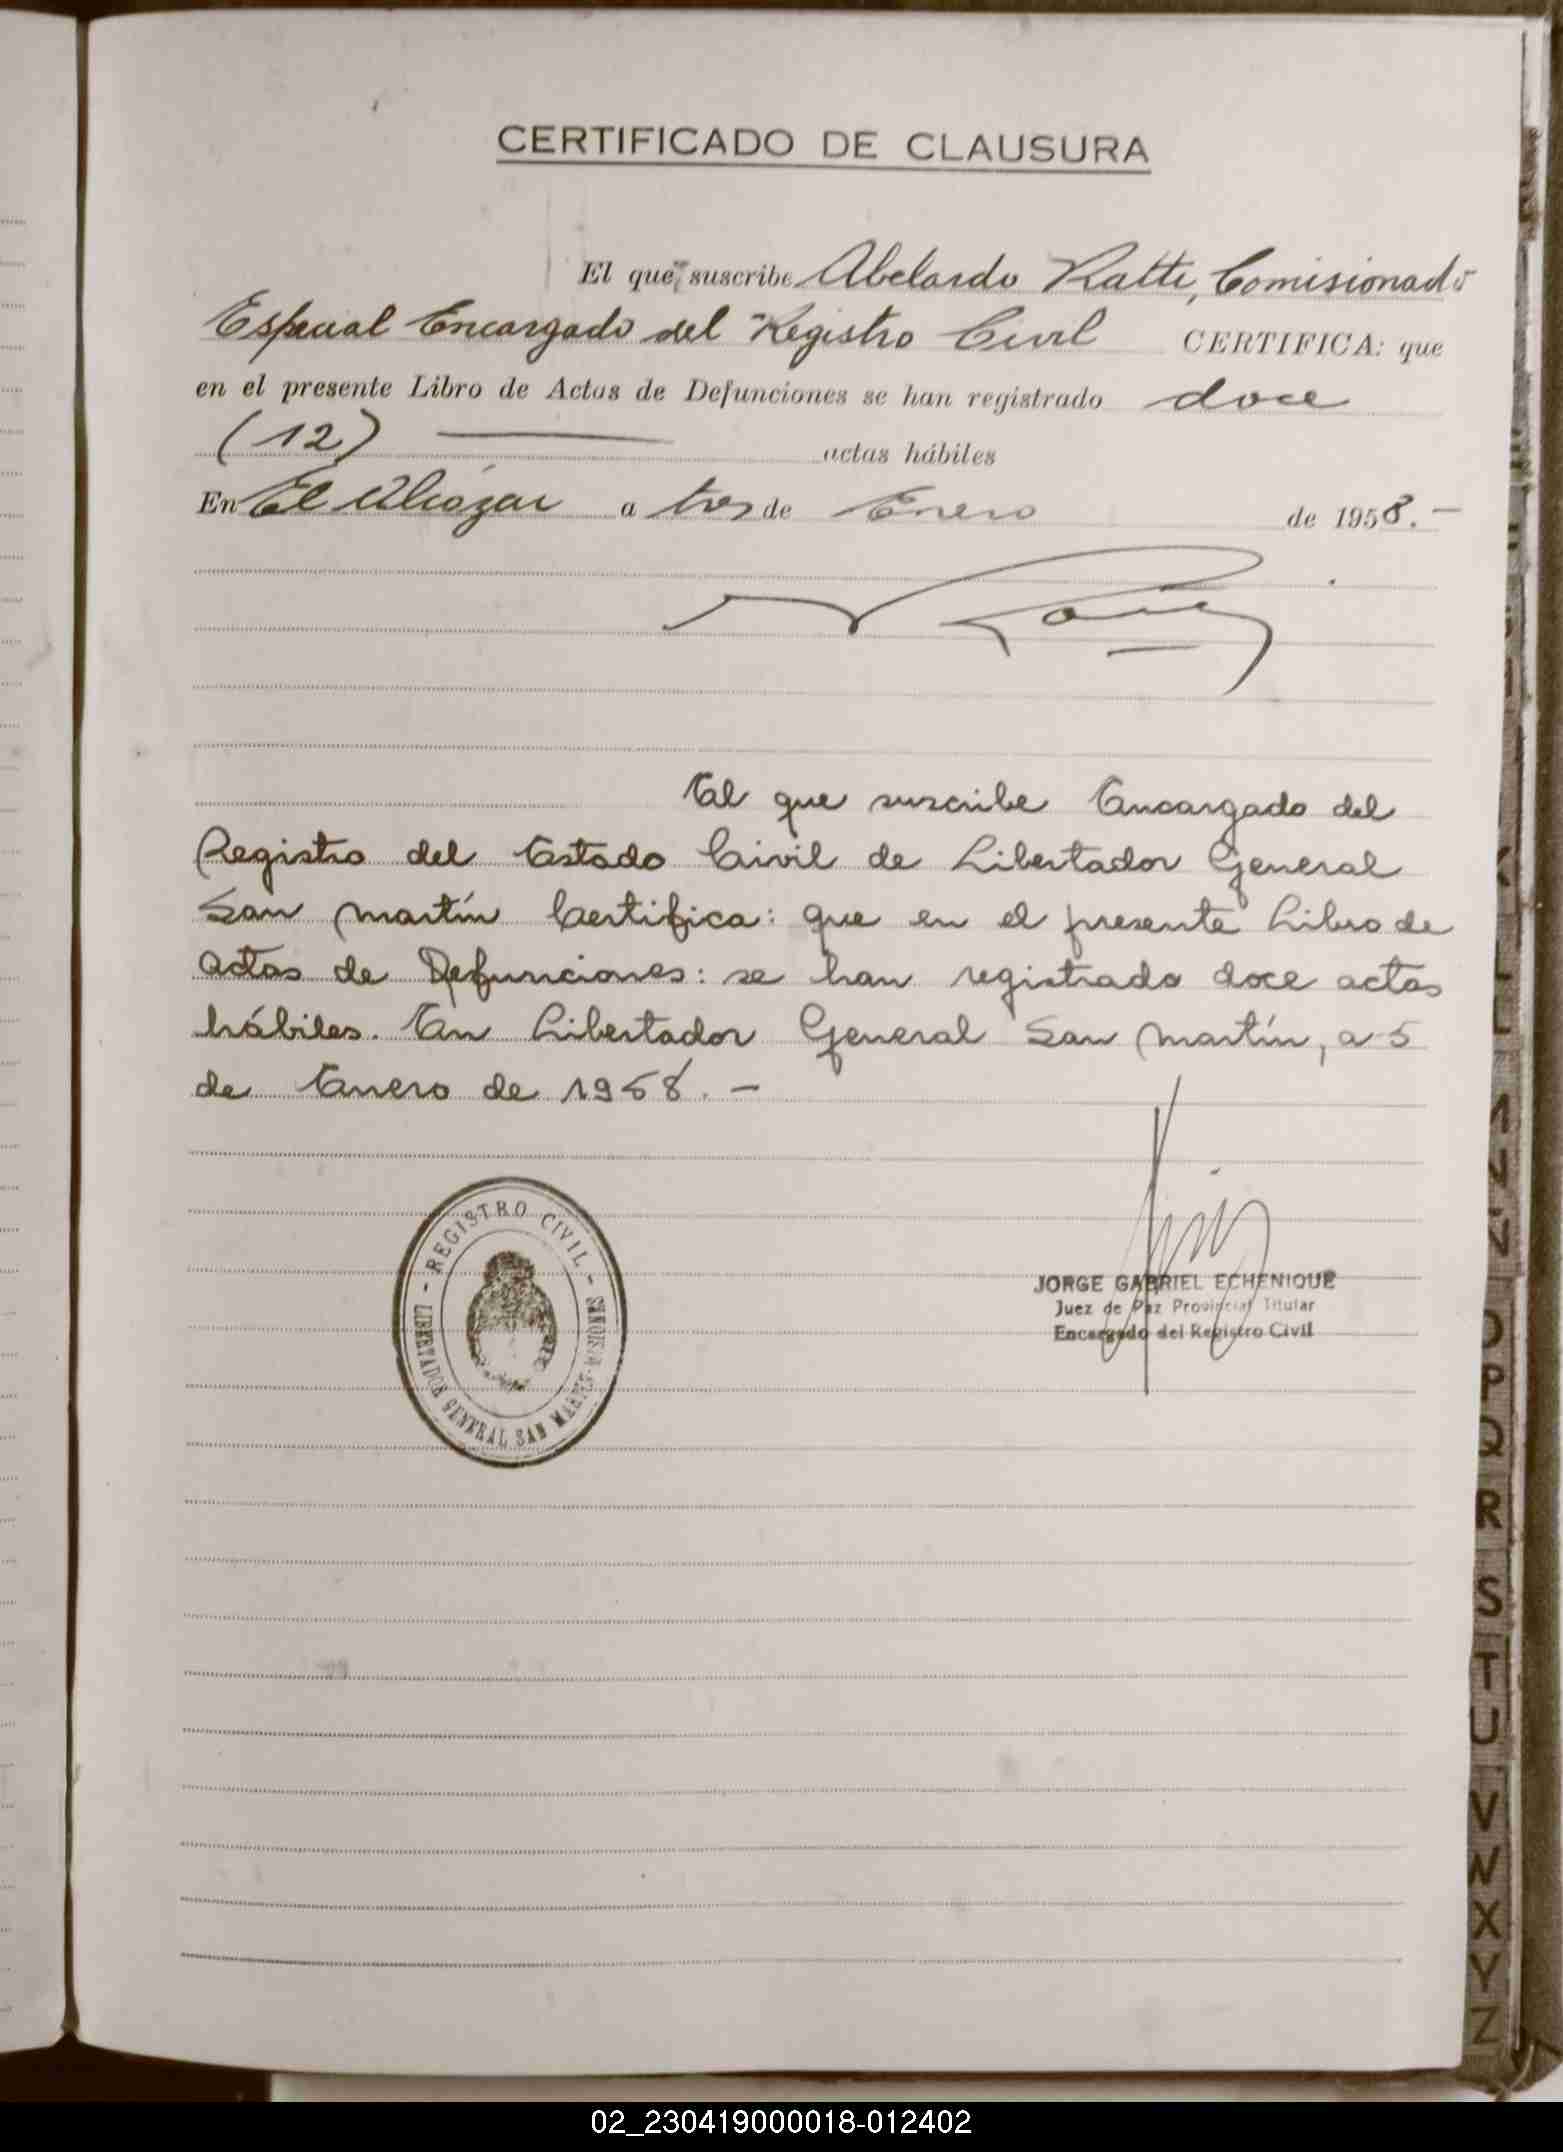 CERTIFICADO DE CLAUSURA
El que suscribe Abelardo Ratti, Comisionado
Especial Encargado del Registro Civil CERTIFICA: que
en el presente Libro de Actas de Defunciones se han registrado doce
(12) actas hábiles
En El Alcázar a tres de Enero de 1958.-
El que suscribe Encargado del
Registro del Estado Civil de Libertador General
San Martín Certifica: que en el presente Libro de
actas de Defunciones: se han registrado doce actas
hábiles. En Libertador General San Martín, a 5
de Enero de 1958.-
- REGISTRO CIVIL -
LIBERTADOR GENERAL SAN MARTIN-MISIONES
JORGE GABRIEL ECHENIQUE
Juez de Paz Provincial Titular
Encargado del Registro Civil
O
P
Q
R
S
T
U
V
W
X
Y
Z
02_230419000018-012402